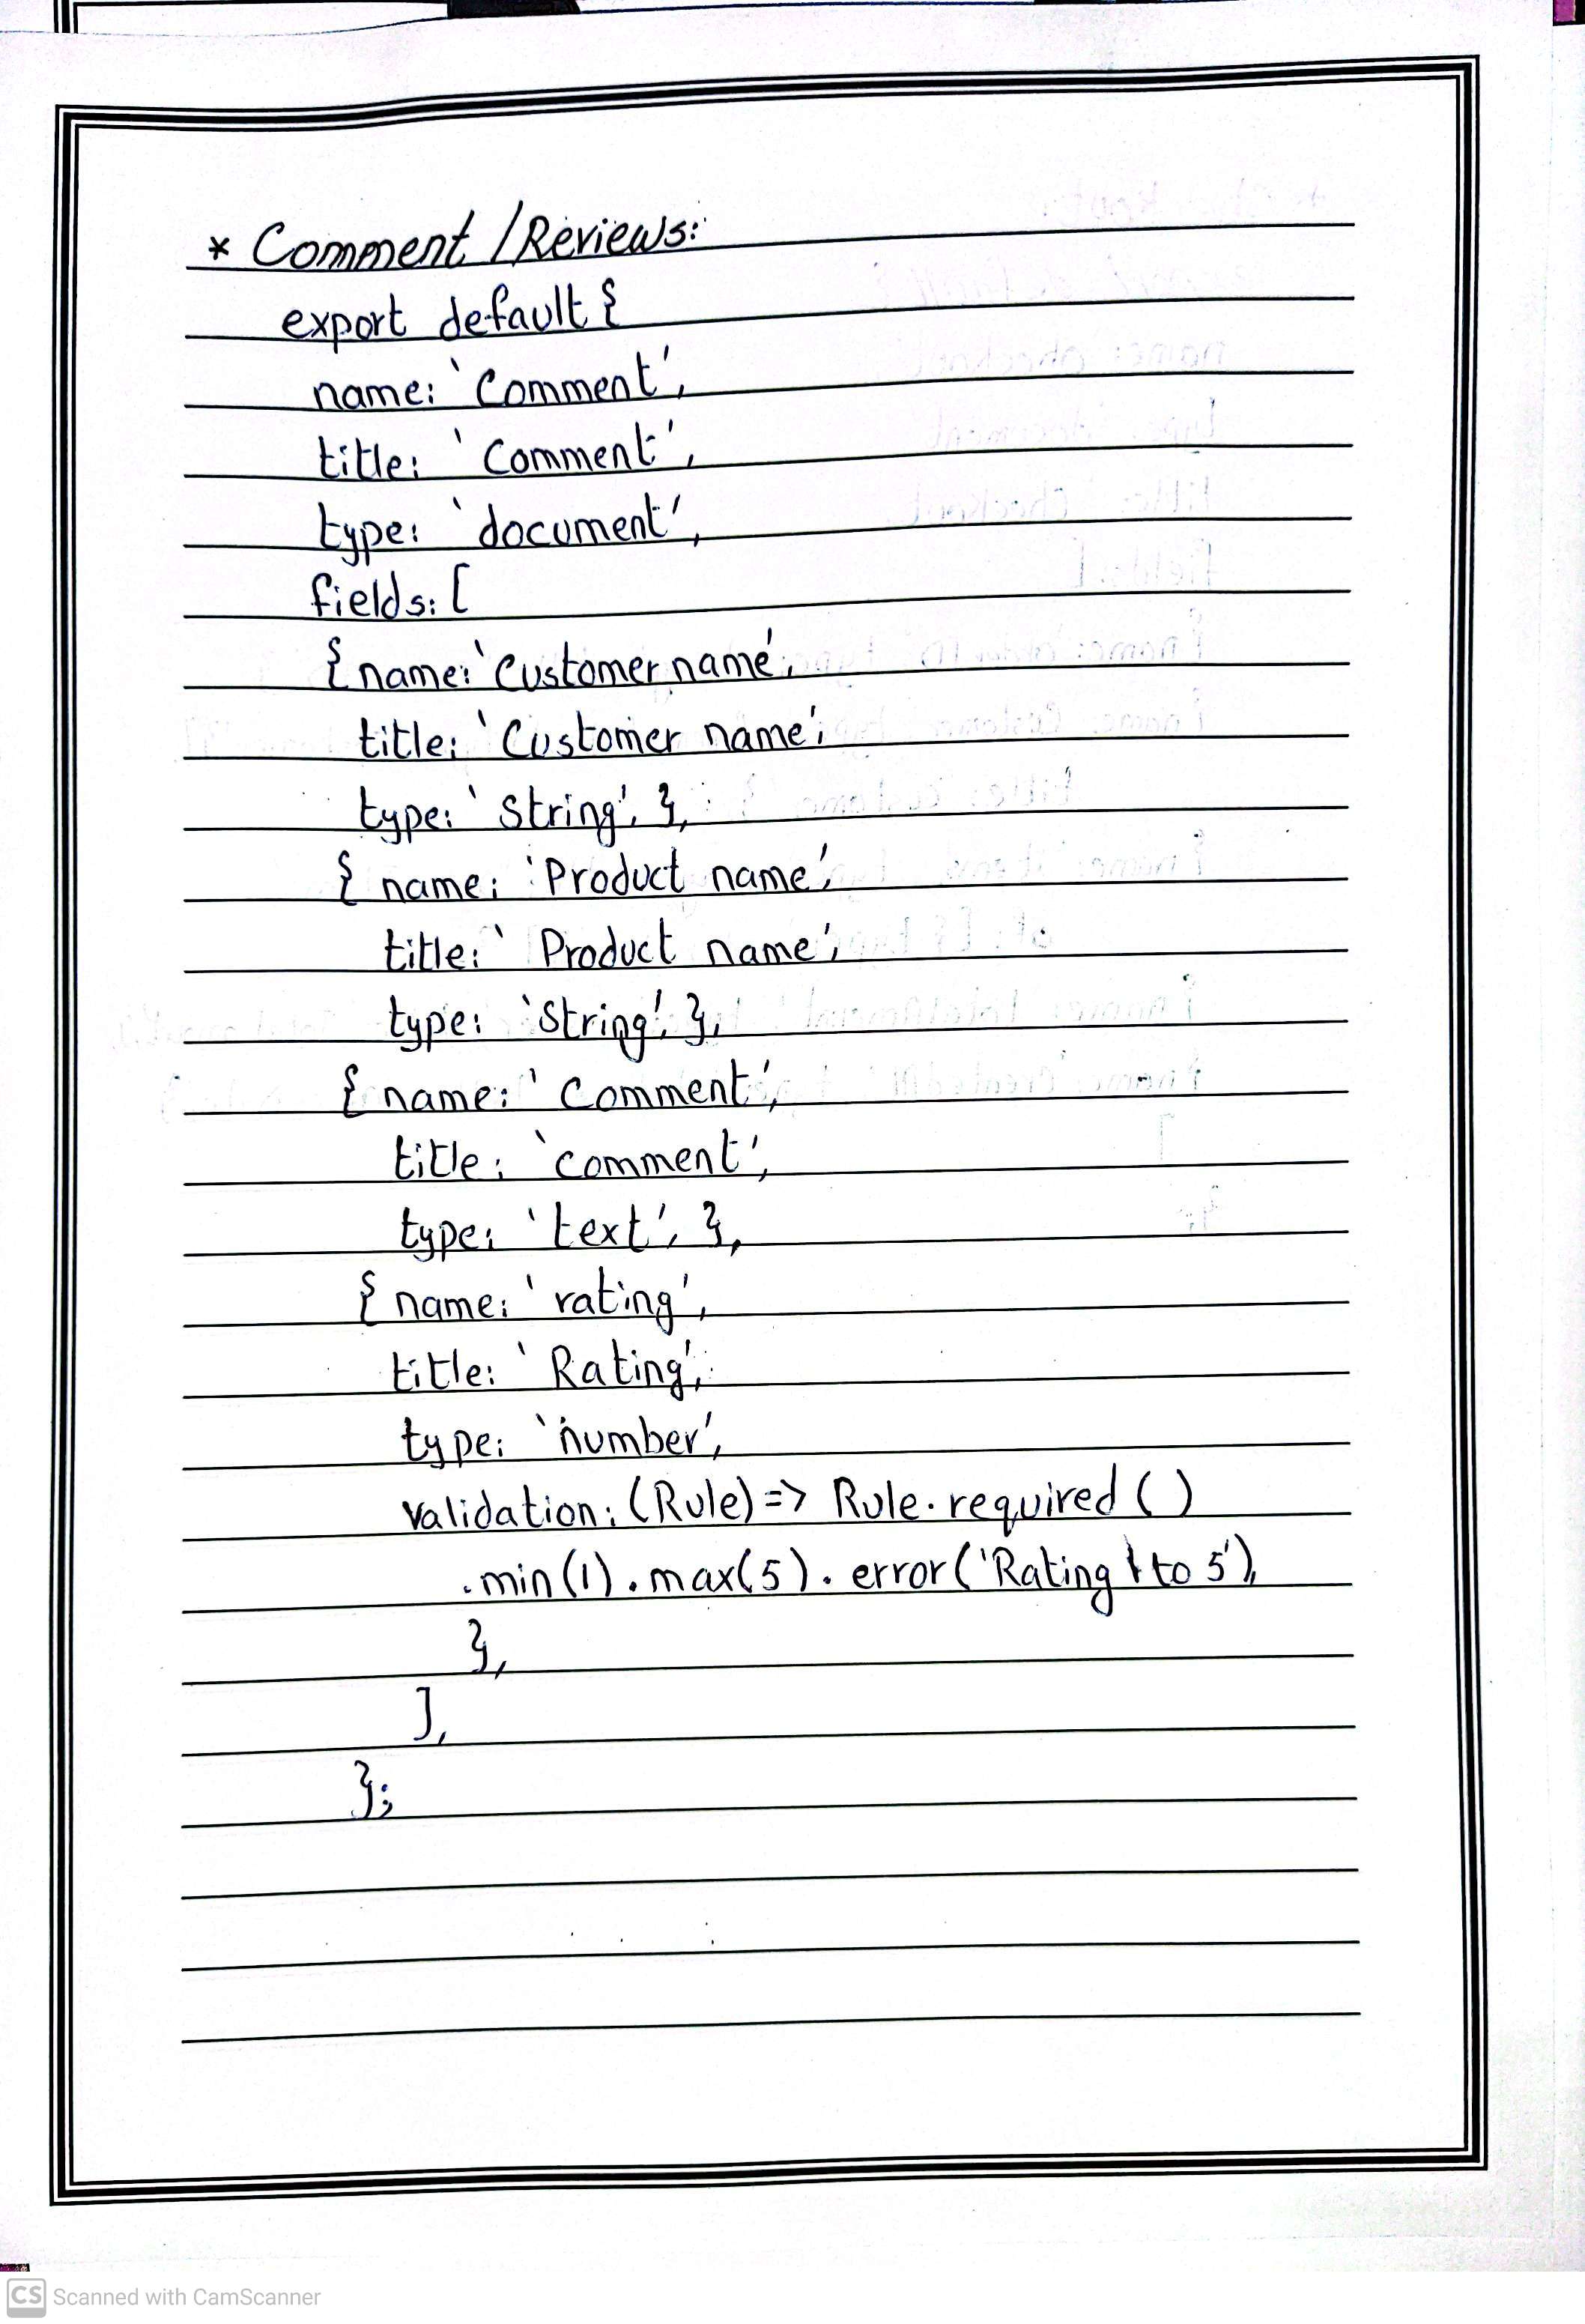 * Comment / Reviews:
export default {
name: 'Comment',
title: 'Comment',
type: 'document',
fields: [
{ name: 'Customer name',
title: 'Customer name',
type: 'String', },
{ name: 'Product name',
title: 'Product name',
type: 'String', },
{ name: 'Comment',
title: 'comment',
type: 'text', },
{ name: 'rating',
title: 'Rating',
type: 'number',
validation: (Rule) => Rule.required ( )
.min(1).max(5).error('Rating 1 to 5'),
},
],
};
CS Scanned with CamScanner